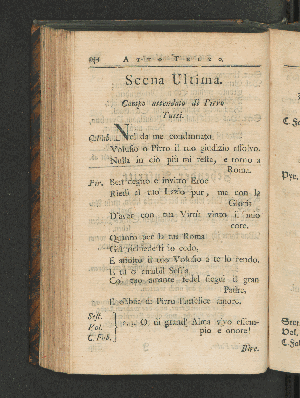 ATTO TERZO.
Scena Ultima.
Campo attendato di Pirro
Tutti.
C.Fab. Nel da me condannato,
Volusio o Pirro il tuo giudizio assolvo.
Nulla in ciò più mi reste, e torno a
Roma.
Pir. Ben degno e invitto Eroe
Riedi al tuo Lazio pur, me con la
Gloria
D'aver con tua Virtù vinto il mio
core.
Quanto per la tua Roma
Già richiedesti io lodo,
E al tuo Volusio a te lo rendo.
E tu o amabil Sesta
Col tuo amante fedel siegui il gran
Padre,
E di Pirro l'infelice amore.
Sest.
Vol.
C. Fab.
O di grand' Alma vivo esem-
pio e onore!
Dire.